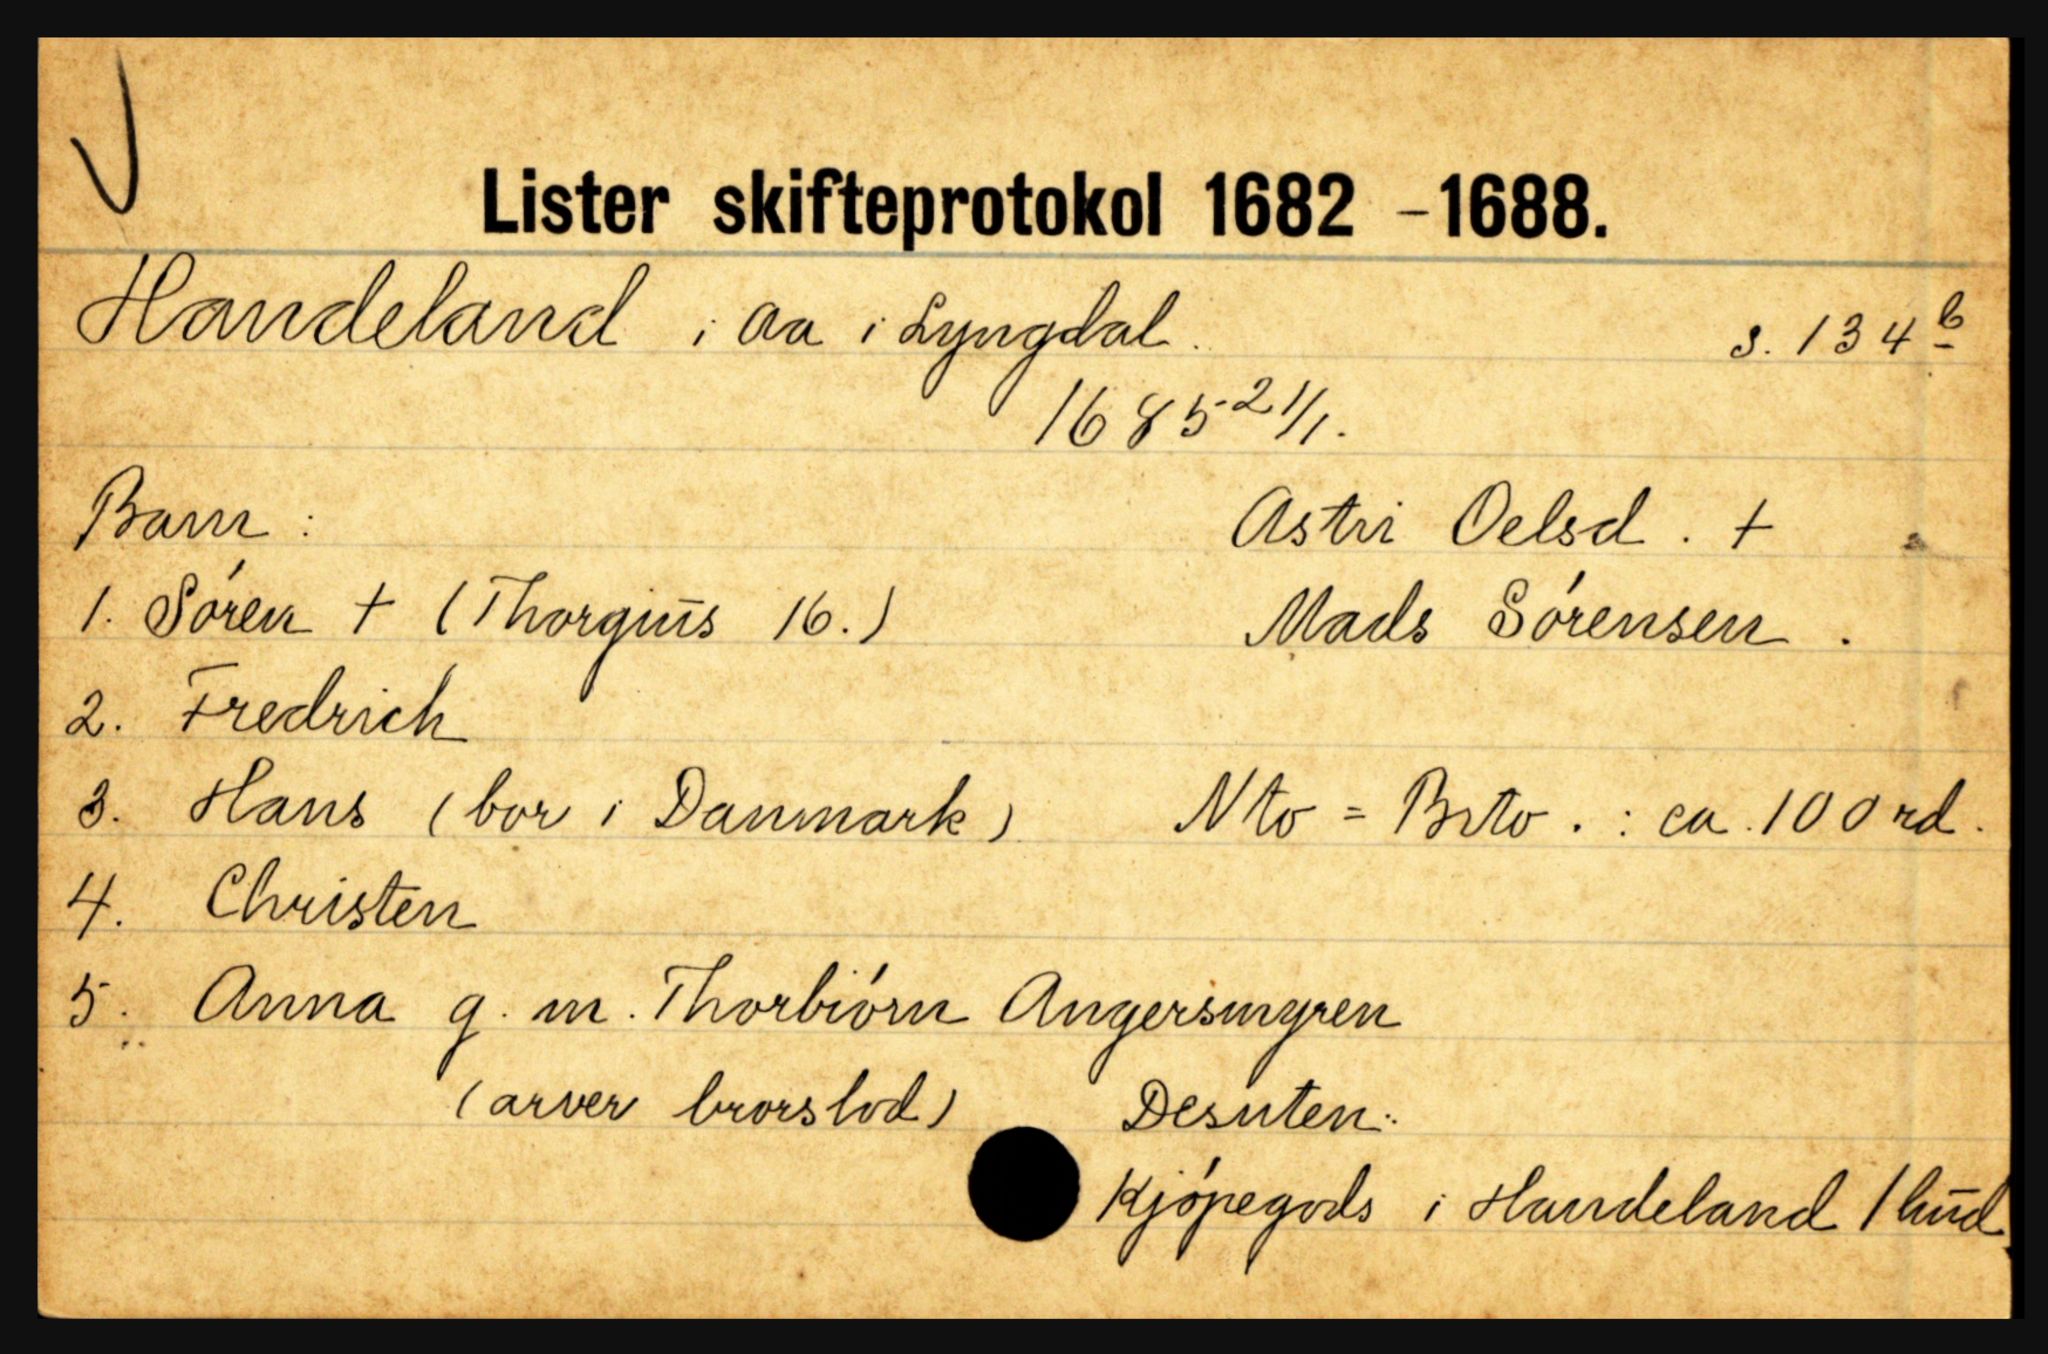 Lister skifteprotokol 1682 - 1688.
Handeland i Aa i Lyngdal. s. 134 b
1685 21/1.
Barn : Astri Oelsd. +
1. Sören + (Thorgius 16.) Mads Sörensen.
2. Fredrich
3. Hans (bor i Danmark) Nto = Brto. : ca. 100 rd.
4. Christen
5. Anna g. m. Thorbiórn Angersmyren
(arver brorslod) Desuten:
Kjópegods i Handeland 1 hud